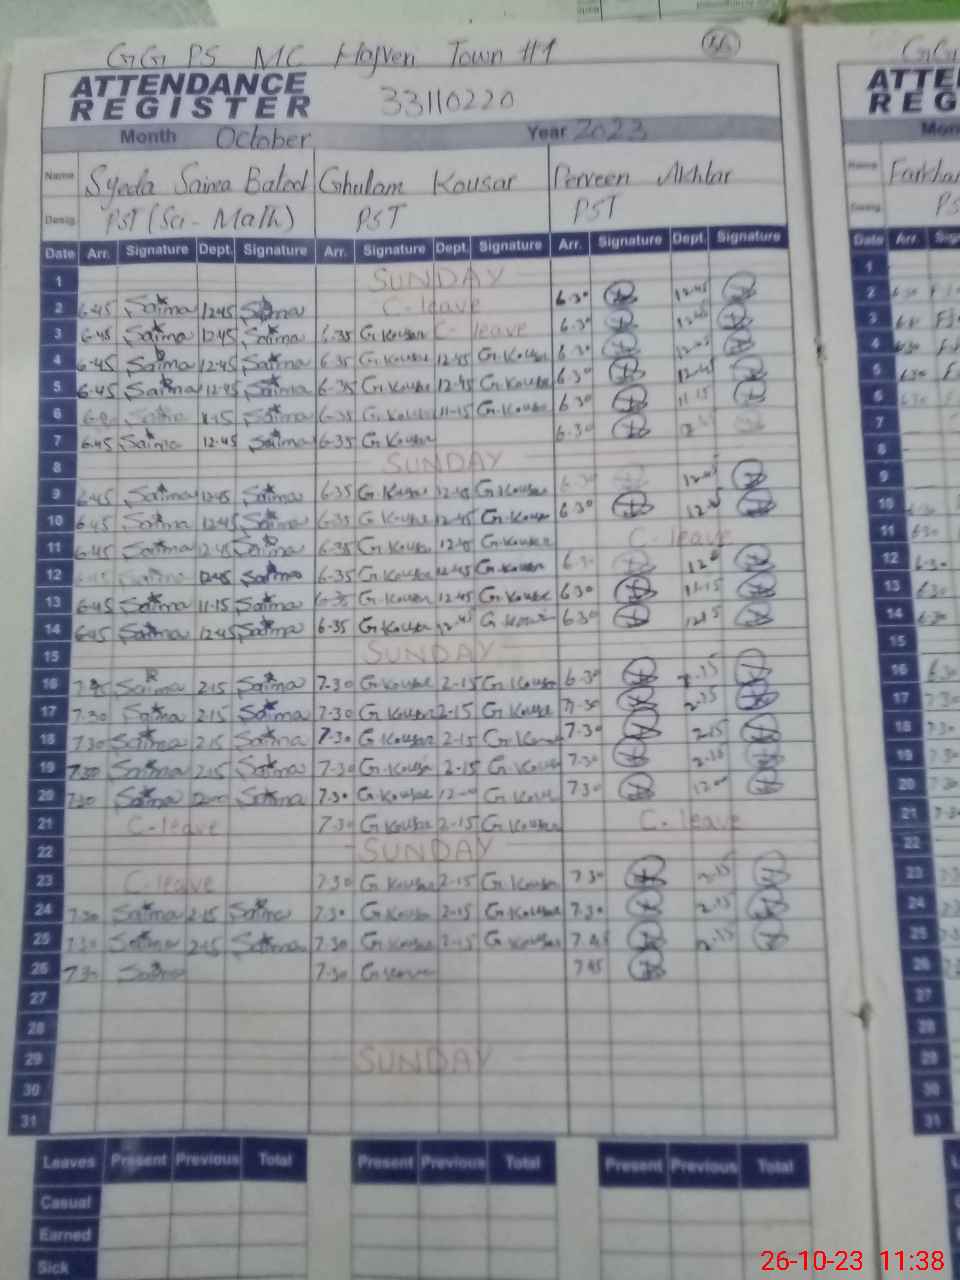 GG PS MC Hajven Town #1
ATTENDANCE
REGISTER
33110220
Month October Year 2023
Name Syeda Saima Ghulam Kousar Perveen Akhtar
Desig. PST (Sci-Math) PST PST
Date Arr. Signature Dept. Signature Arr. Signature Dept. Signature Arr. Signature Dept. Signature
1 SUNDAY
2 6-45 Saima 12-45 Saima C-leave 6-30 12-45
3 6-45 Saima 12-45 Saima 6-35 G.Kousar C-leave 6-30 12-45
4 6-45 Saima 12-45 Saima 6-35 G.Kousar 12-45 G.Kousar 6-30 12-45
5 6-45 Saima 12-45 Saima 6-35 G.Kousar 12-45 G.Kousar 6-30 12-45
6 Saima 11-15 Saima 6-35 G.Kousar 11-15 G.Kousar 6-30 11-15
7 6-45 Saima 12-45 Saima 6-35 G.Kousar 6-30
8 SUNDAY
9 6-45 Saima 12-45 Saima 6-35 G.Kousar 12-45 G.Kousar 6-30 12-45
10 6-45 Saima 12-45 Saima 6-35 G.Kousar 12-45 G.Kousar 6-30
11 6-45 Saima 12-45 Saima 6-35 G.Kousar 12-45 G.Kousar C-leave
12 Saima 12-45 Saima 6-35 G.Kousar 12-45 G.Kousar 6-30
13 6-45 Saima 11-15 Saima 6-35 G.Kousar 12-45 G.Kousar 6-30 11-15
14 6-45 Saima 12-45 Saima 6-35 G.Kousar 12-45 G.Kousar 6-30
15 SUNDAY
16 Saima 2-15 Saima 7-30 G.Kousar 2-15 G.Kousar 6-30 2-15
17 7-30 Saima 2-15 Saima 7-30 G.Kousar 2-15 G.Kousar 7-30 2-15
18 7-30 Saima 2-15 Saima 7-30 G.Kousar 2-15 G.Kousar 7-30 2-15
19 7-30 Saima 2-15 Saima 7-30 G.Kousar 2-15 G.Kousar 7-30 2-15
20 7-30 Saima 12-00 Saima 7-30 G.Kousar 12-00 G.Kousar 7-30 12-00
21 C-leave 7-30 G.Kousar 2-15 G.Kousar C-leave
22 SUNDAY
23 C-leave 7-30 G.Kousar 2-15 G.Kousar 7-30 2-15
24 7-30 Saima 2-15 Saima 7-30 G.Kousar 2-15 G.Kousar 7-30 2-15
25 7-30 Saima 2-15 Saima 7-30 G.Kousar 2-15 G.Kousar 7-45 2-15
26 7-30 Saima 7-30 G.Kousar 7-45
27
28
29 SUNDAY
30
31
Leaves Present Previous Total Present Previous Total Present Previous Total
Casual
Earned
Sick
26-10-23 11:38